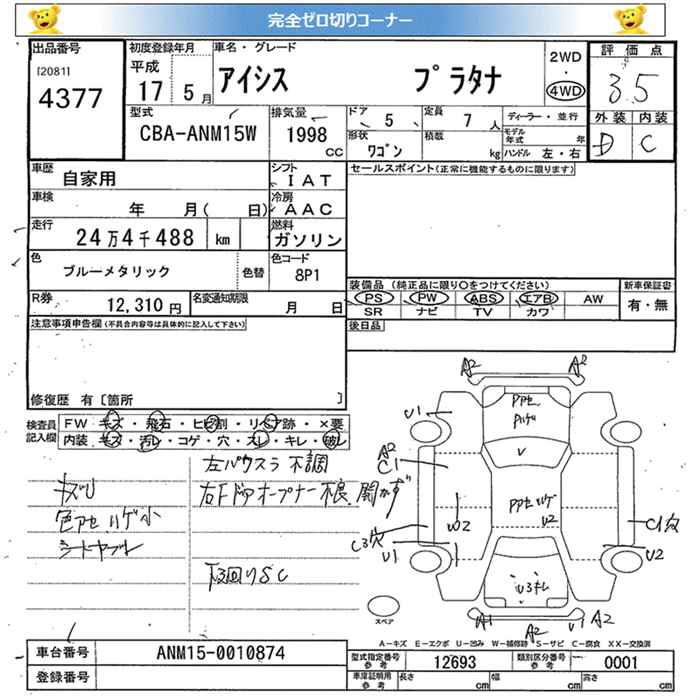 完全ゼロ切りコーナー
出品番号
[2081]
4377
初度登録年月
平成
17 5月
車名・グレード
アイシス プラタナ
2WD
・
4WD
評価点
3.5
型式
CBA-ANM15W
排気量
1998
CC
ドア
5
定員
7 人
形状
ワゴン
積載
kg
ディーラー・並行
モデル年式 年
ハンドル 左・右
外装 内装
D C
車歴
自家用
シフト
IAT
車検
年 月( 日)
冷房
AAC
走行
24万4千488 km
燃料
ガソリン
色
ブルーメタリック
色替
色コード
8P1
R券
12,310 円
名変通知期限
月 日
セールスポイント(正常に機能するものに限ります)
装備品 (純正品に限り○をつけてください)
PS PW ABS エアB AW
SR ナビ TV カワ
新車保証書
有・無
後日品
注意事項申告欄(不具合内容等は具体的に記入して下さい)
修復歴 有〔箇所 〕
検査員記入欄
FW キズ・飛石・ヒビ割・リペア跡・×要
内装 キズ・汚レ・コゲ・穴・スレ・キレ・破レ
キズU
色アセ ハゲ小
シートヤブレ
左パワスラ 不調
右Fドアオープナー不良 開かず
下3回りSC
A2 A2
U1
アセ
ハゲ
A2
C1
V
W2
アセ ハゲ
U2
C3穴
U1
C1穴
U2
U3キレ
A1
A2
U1 A2
スペア
A-キズ E-エクボ U-凹み W-補修跡 S-サビ C-腐食 XX-交換済
車台番号
ANM15-0010874
登録番号
型式指定番号
参考
12693
類別区分番号
参考
0001
車庫証明用
参考
長さ cm
幅 cm
高さ cm